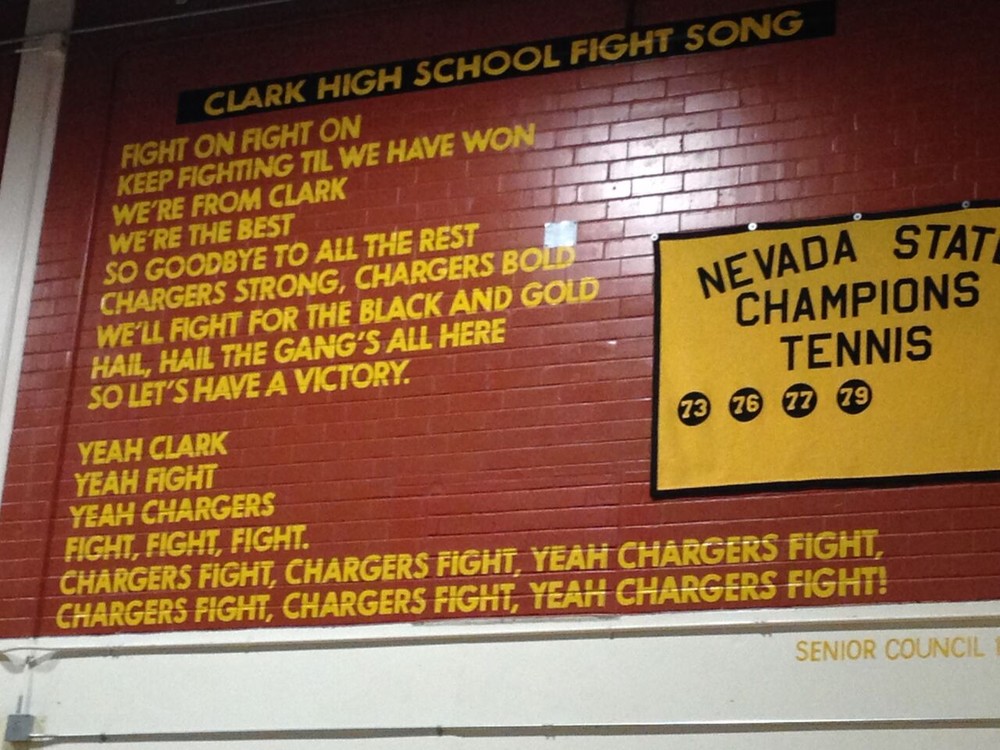 CLARK HIGH SCHOOL FIGHT SONG
FIGHT ON FIGHT ON
KEEP FIGHTING TIL WE HAVE WON
WE'RE FROM CLARK
WE'RE THE BEST
SO GOODBYE TO ALL THE REST
CHARGERS STRONG, CHARGERS BOLD
WE'LL FIGHT FOR THE BLACK AND GOLD
HAIL, HAIL THE GANG'S ALL HERE
SO LET'S HAVE A VICTORY.
YEAH CLARK
YEAH FIGHT
YEAH CHARGERS
FIGHT, FIGHT, FIGHT.
CHARGERS FIGHT, CHARGERS FIGHT, YEAH CHARGERS FIGHT,
CHARGERS FIGHT, CHARGERS FIGHT, YEAH CHARGERS FIGHT!
NEVADA STATE
CHAMPIONS
TENNIS
73 76 77 79
SENIOR COUNCIL